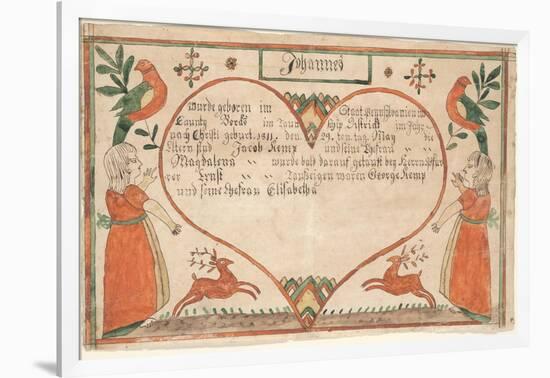 Johannes
wurde geboren im Staat Pennsylvanien im
Caunty Bercks im Taun schip District im Jahr
nach Christi geburt 1811. den 29. ten tag May die
Eltern sind Jacob Kemp und seine Ehefrau
Magdalena wurde bald darauf getauft bei Herrn Pfar
rer Ernst Taufzeigen waren George Kemp
und seine Ehefrau Elisabetha